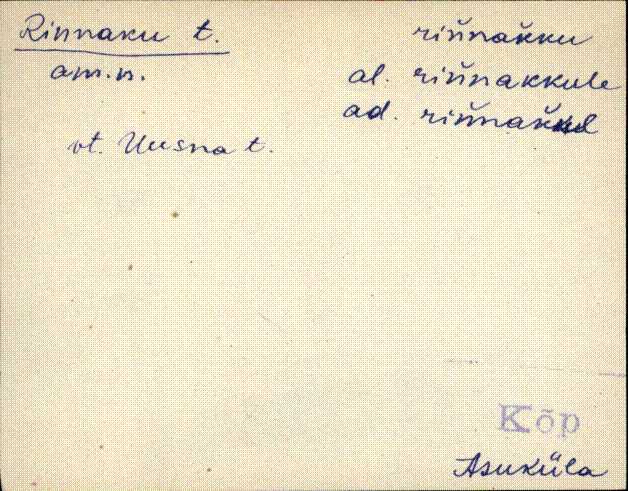 Rinnaku t.
am.n.
vt. Uusna t.
rin̆nak̆ku
al. rin̆nakkule
ad. rin̆nak̆kul
Kõp
Asuküla